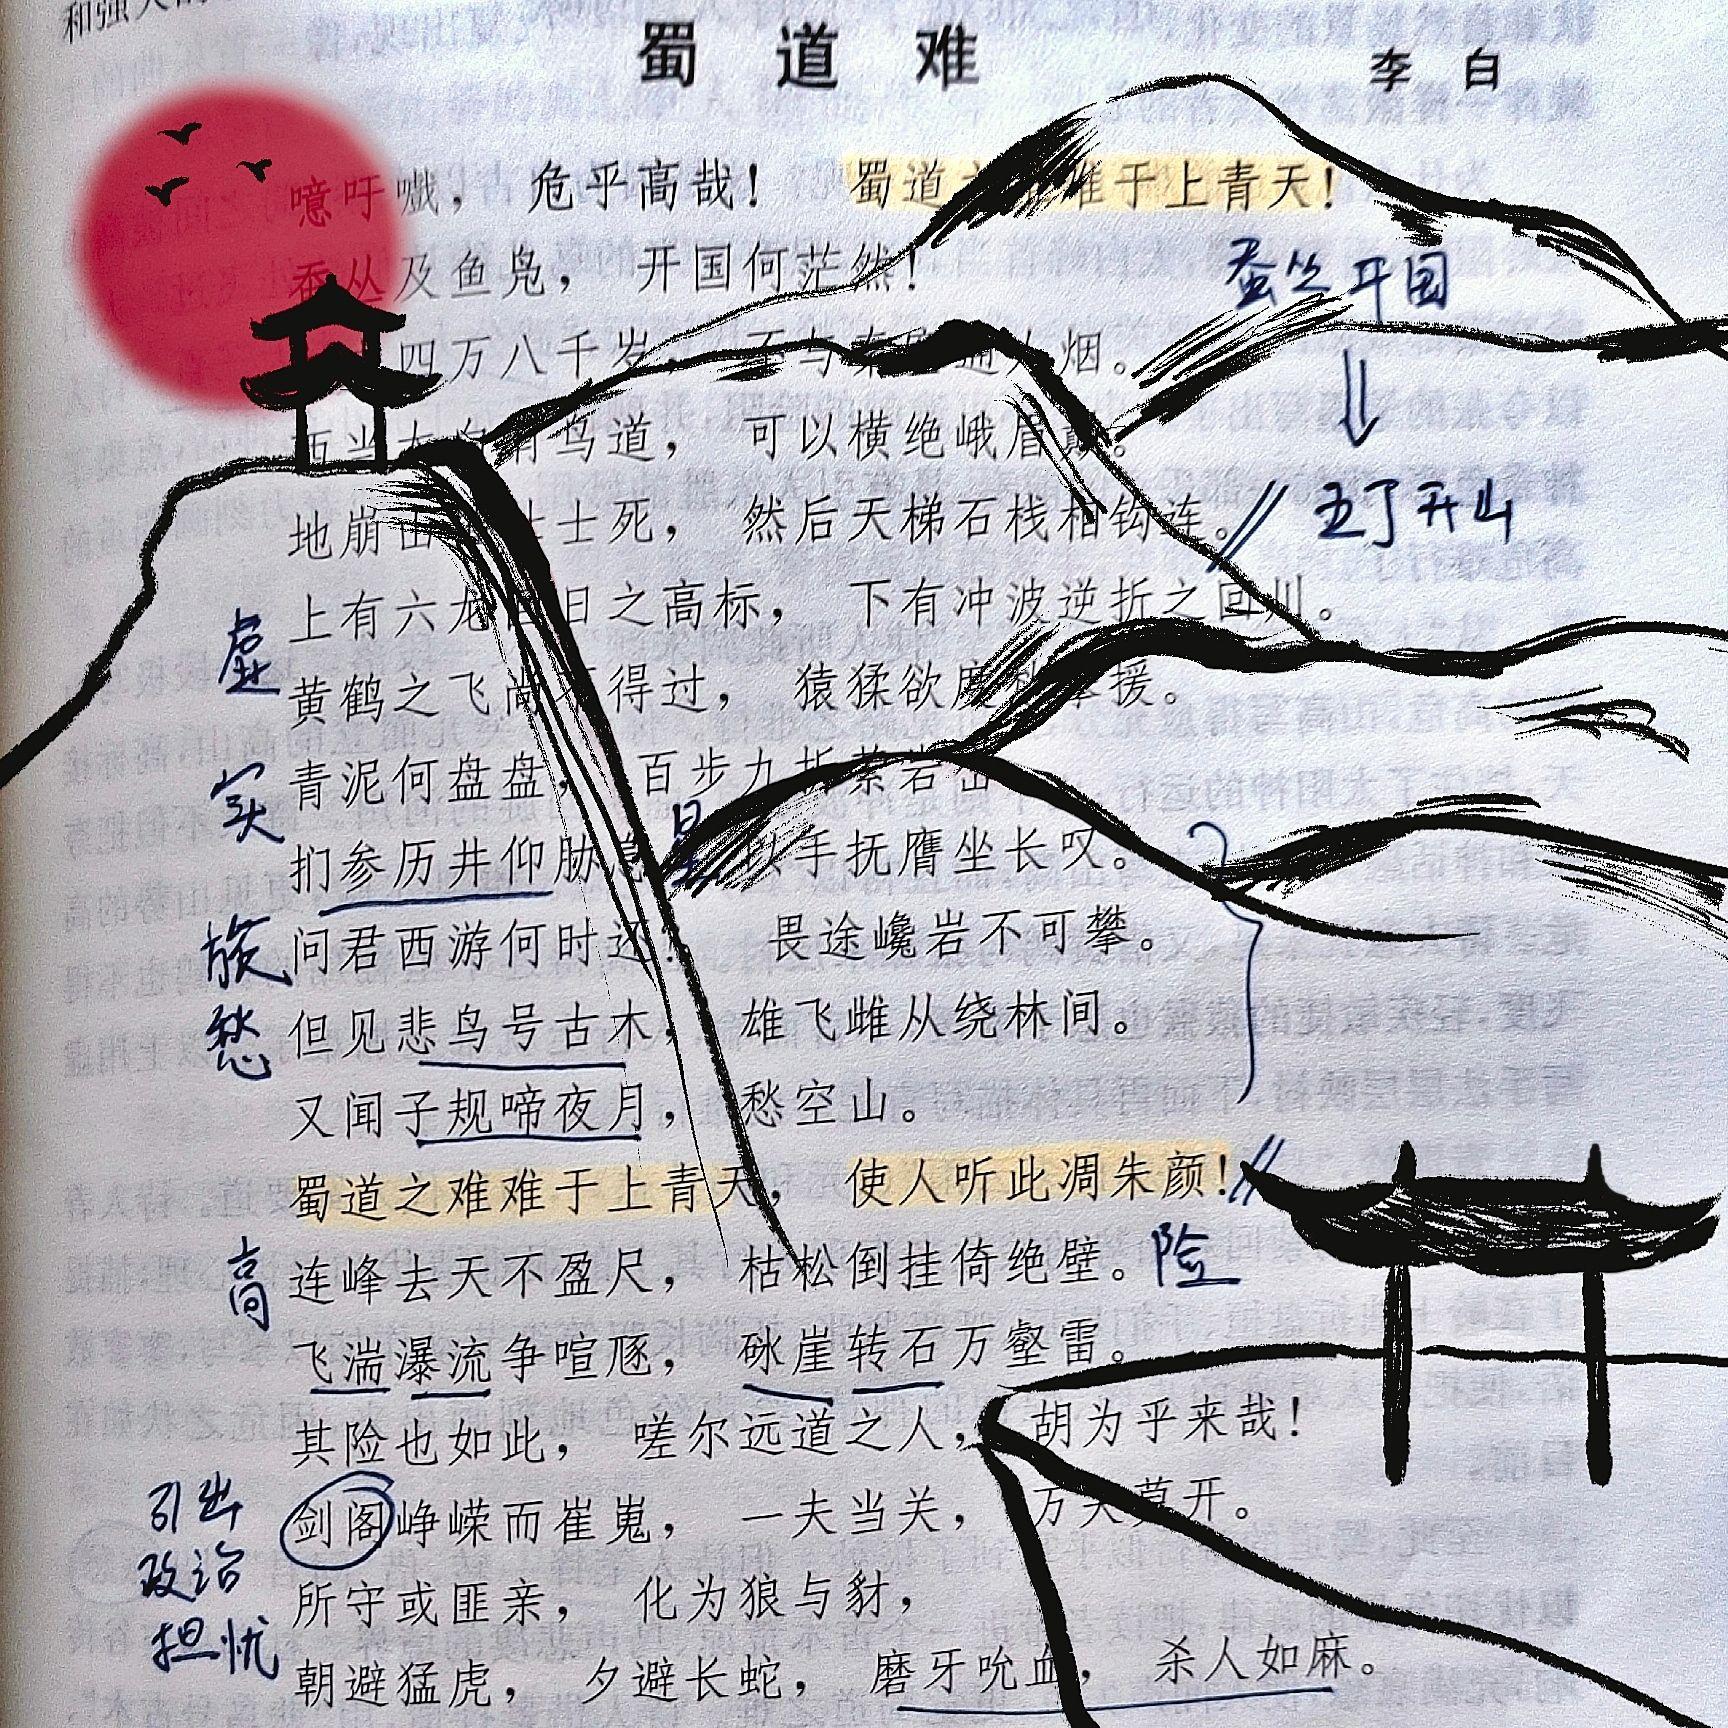 蜀道难
李白
噫吁嚱，危乎高哉！蜀道之难于上青天！
蚕丛及鱼凫，开国何茫然！
蚕丛开国
四万八千岁，不与秦塞通人烟。
西当太白有鸟道，可以横绝峨眉巅。
地崩山摧壮士死，然后天梯石栈相钩连。
五丁开山
上有六龙回日之高标，下有冲波逆折之回川。
虚
黄鹤之飞尚不得过，猿猱欲度愁攀援。
实
青泥何盘盘，百步九折萦岩峦
星
扪参历井仰胁息，以手抚膺坐长叹。
旅愁
问君西游何时还？畏途巉岩不可攀。
但见悲鸟号古木，雄飞雌从绕林间。
又闻子规啼夜月，愁空山。
蜀道之难难于上青天，使人听此凋朱颜！
高
连峰去天不盈尺，枯松倒挂倚绝壁。
险
飞湍瀑流争喧豗，砯崖转石万壑雷。
其险也如此，嗟尔远道之人，胡为乎来哉！
引出
政治
担忧
剑阁峥嵘而崔嵬，一夫当关，万夫莫开。
所守或匪亲，化为狼与豺，
朝避猛虎，夕避长蛇，磨牙吮血，杀人如麻。